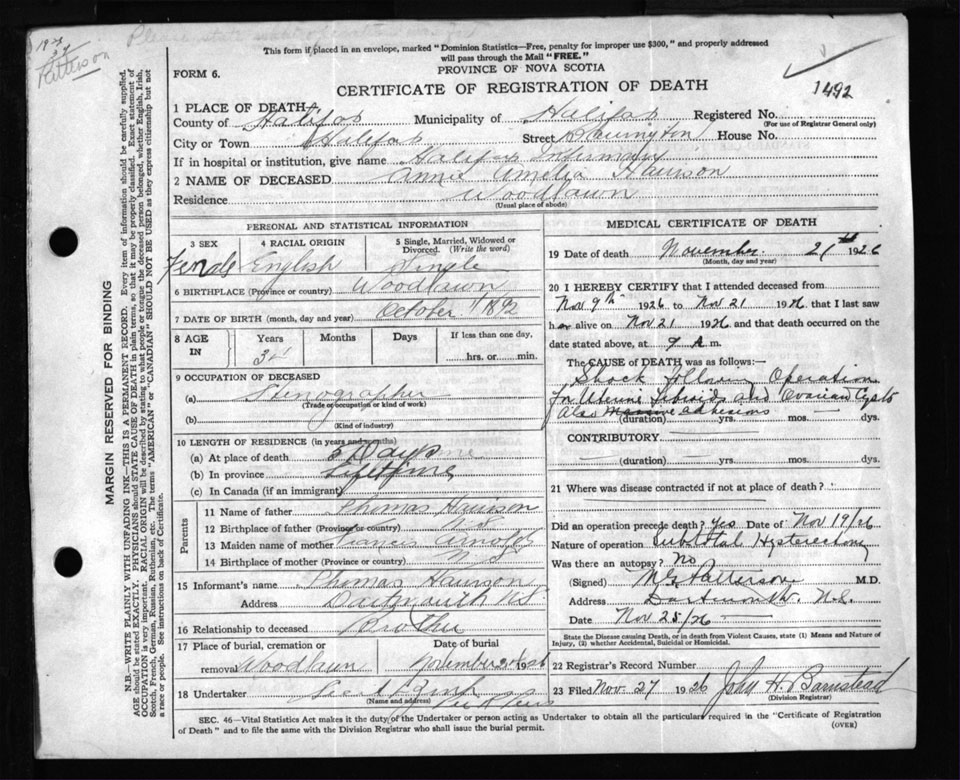 1923
24
Patterson
Please state what operation was for
This form if placed in an envelope, marked "Dominion Statistics—Free, penalty for improper use $300," and properly addressed
will pass through the Mail "FREE."
PROVINCE OF NOVA SCOTIA
FORM 6.
CERTIFICATE OF REGISTRATION OF DEATH
1492
1 PLACE OF DEATH
County of Halifax Municipality of Halifax Registered No.
(For use of Registrar General only)
City or Town Halifax Street Barrington House No.
If in hospital or institution, give name Halifax Infirmary
2 NAME OF DECEASED Annie Amelia Harrison
Residence Woodlawn
(Usual place of abode)
PERSONAL AND STATISTICAL INFORMATION
3 SEX 4 RACIAL ORIGIN 5 Single, Married, Widowed or Divorced. (Write the word)
Female English Single
6 BIRTHPLACE (Province or country) Woodlawn
7 DATE OF BIRTH (month, day and year) October 1892
8 AGE IN Years Months Days If less than one day,
34 hrs. or min.
9 OCCUPATION OF DECEASED
(a) Stenographer
(Trade or occupation or kind of work)
(b)
(Kind of industry)
10 LENGTH OF RESIDENCE (in years and months)
(a) At place of death Days
(b) In province Lifetime
(c) In Canada (if an immigrant)
Parents
11 Name of father Thomas Harrison
12 Birthplace of father (Province or country) N.S.
13 Maiden name of mother Frances Arnold
14 Birthplace of mother (Province or country) N.S.
15 Informant's name Thomas Harrison
Address Dartmouth NS
16 Relationship to deceased Brother
17 Place of burial, cremation or removal Date of burial
Woodlawn November 1926
18 Undertaker
(Name and address)
MEDICAL CERTIFICATE OF DEATH
19 Date of death November 21st 1926
(Month, day and year)
20 I HEREBY CERTIFY that I attended deceased from
Nov 9th 1926 to Nov 21 1926 that I last saw
her alive on Nov 21 1926 and that death occurred on the
date stated above, at 9 A.m.
The CAUSE OF DEATH was as follows:—
Shock following Operation
for Uterine fibroids and Ovarian Cysts
Also Massive adhesions
(duration) yrs. mos. dys.
CONTRIBUTORY
(duration) yrs. mos. dys.
21 Where was disease contracted if not at place of death?
Did an operation precede death? Yes Date of Nov 19/26
Nature of operation Subtotal Hysterectomy
Was there an autopsy? No
(Signed) Patterson M.D.
Address Dartmouth. N.S.
Date Nov 25/26
State the Disease causing Death, or in death from Violent Causes, state (1) Means and Nature of
Injury, (2) whether Accidental, Suicidal or Homicidal.
22 Registrar's Record Number
23 Filed Nov. 27 1926 John H. Barnstead
(Division Registrar)
SEC. 46—Vital Statistics Act makes it the duty of the Undertaker or person acting as Undertaker to obtain all the particulars required in the "Certificate of Registration
of Death" and to file the same with the Division Registrar who shall issue the burial permit.
(OVER)
MARGIN RESERVED FOR BINDING
N.B.—WRITE PLAINLY WITH UNFADING INK—THIS IS A PERMANENT RECORD. Every item of information should be carefully supplied.
AGE should be stated EXACTLY. PHYSICIANS should STATE CAUSE OF DEATH in plain terms, so that it may be properly classified. Exact statement of
OCCUPATION is very important. RACIAL ORIGIN will be described by stating to what people or tongue the deceased person belonged, whether English, Irish,
Scotch, French, German, Russian, Ruthenian, etc. The terms "AMERICAN" or "CANADIAN" SHOULD NOT BE USED as they express citizenship but not
a race or people. See instructions on back of Certificate.